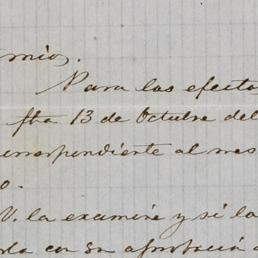 mio.
Para los efecto
fha 13 de Octubre del
orrespondiente al mes
o.
V. la examine y si la
da con su aprobacion